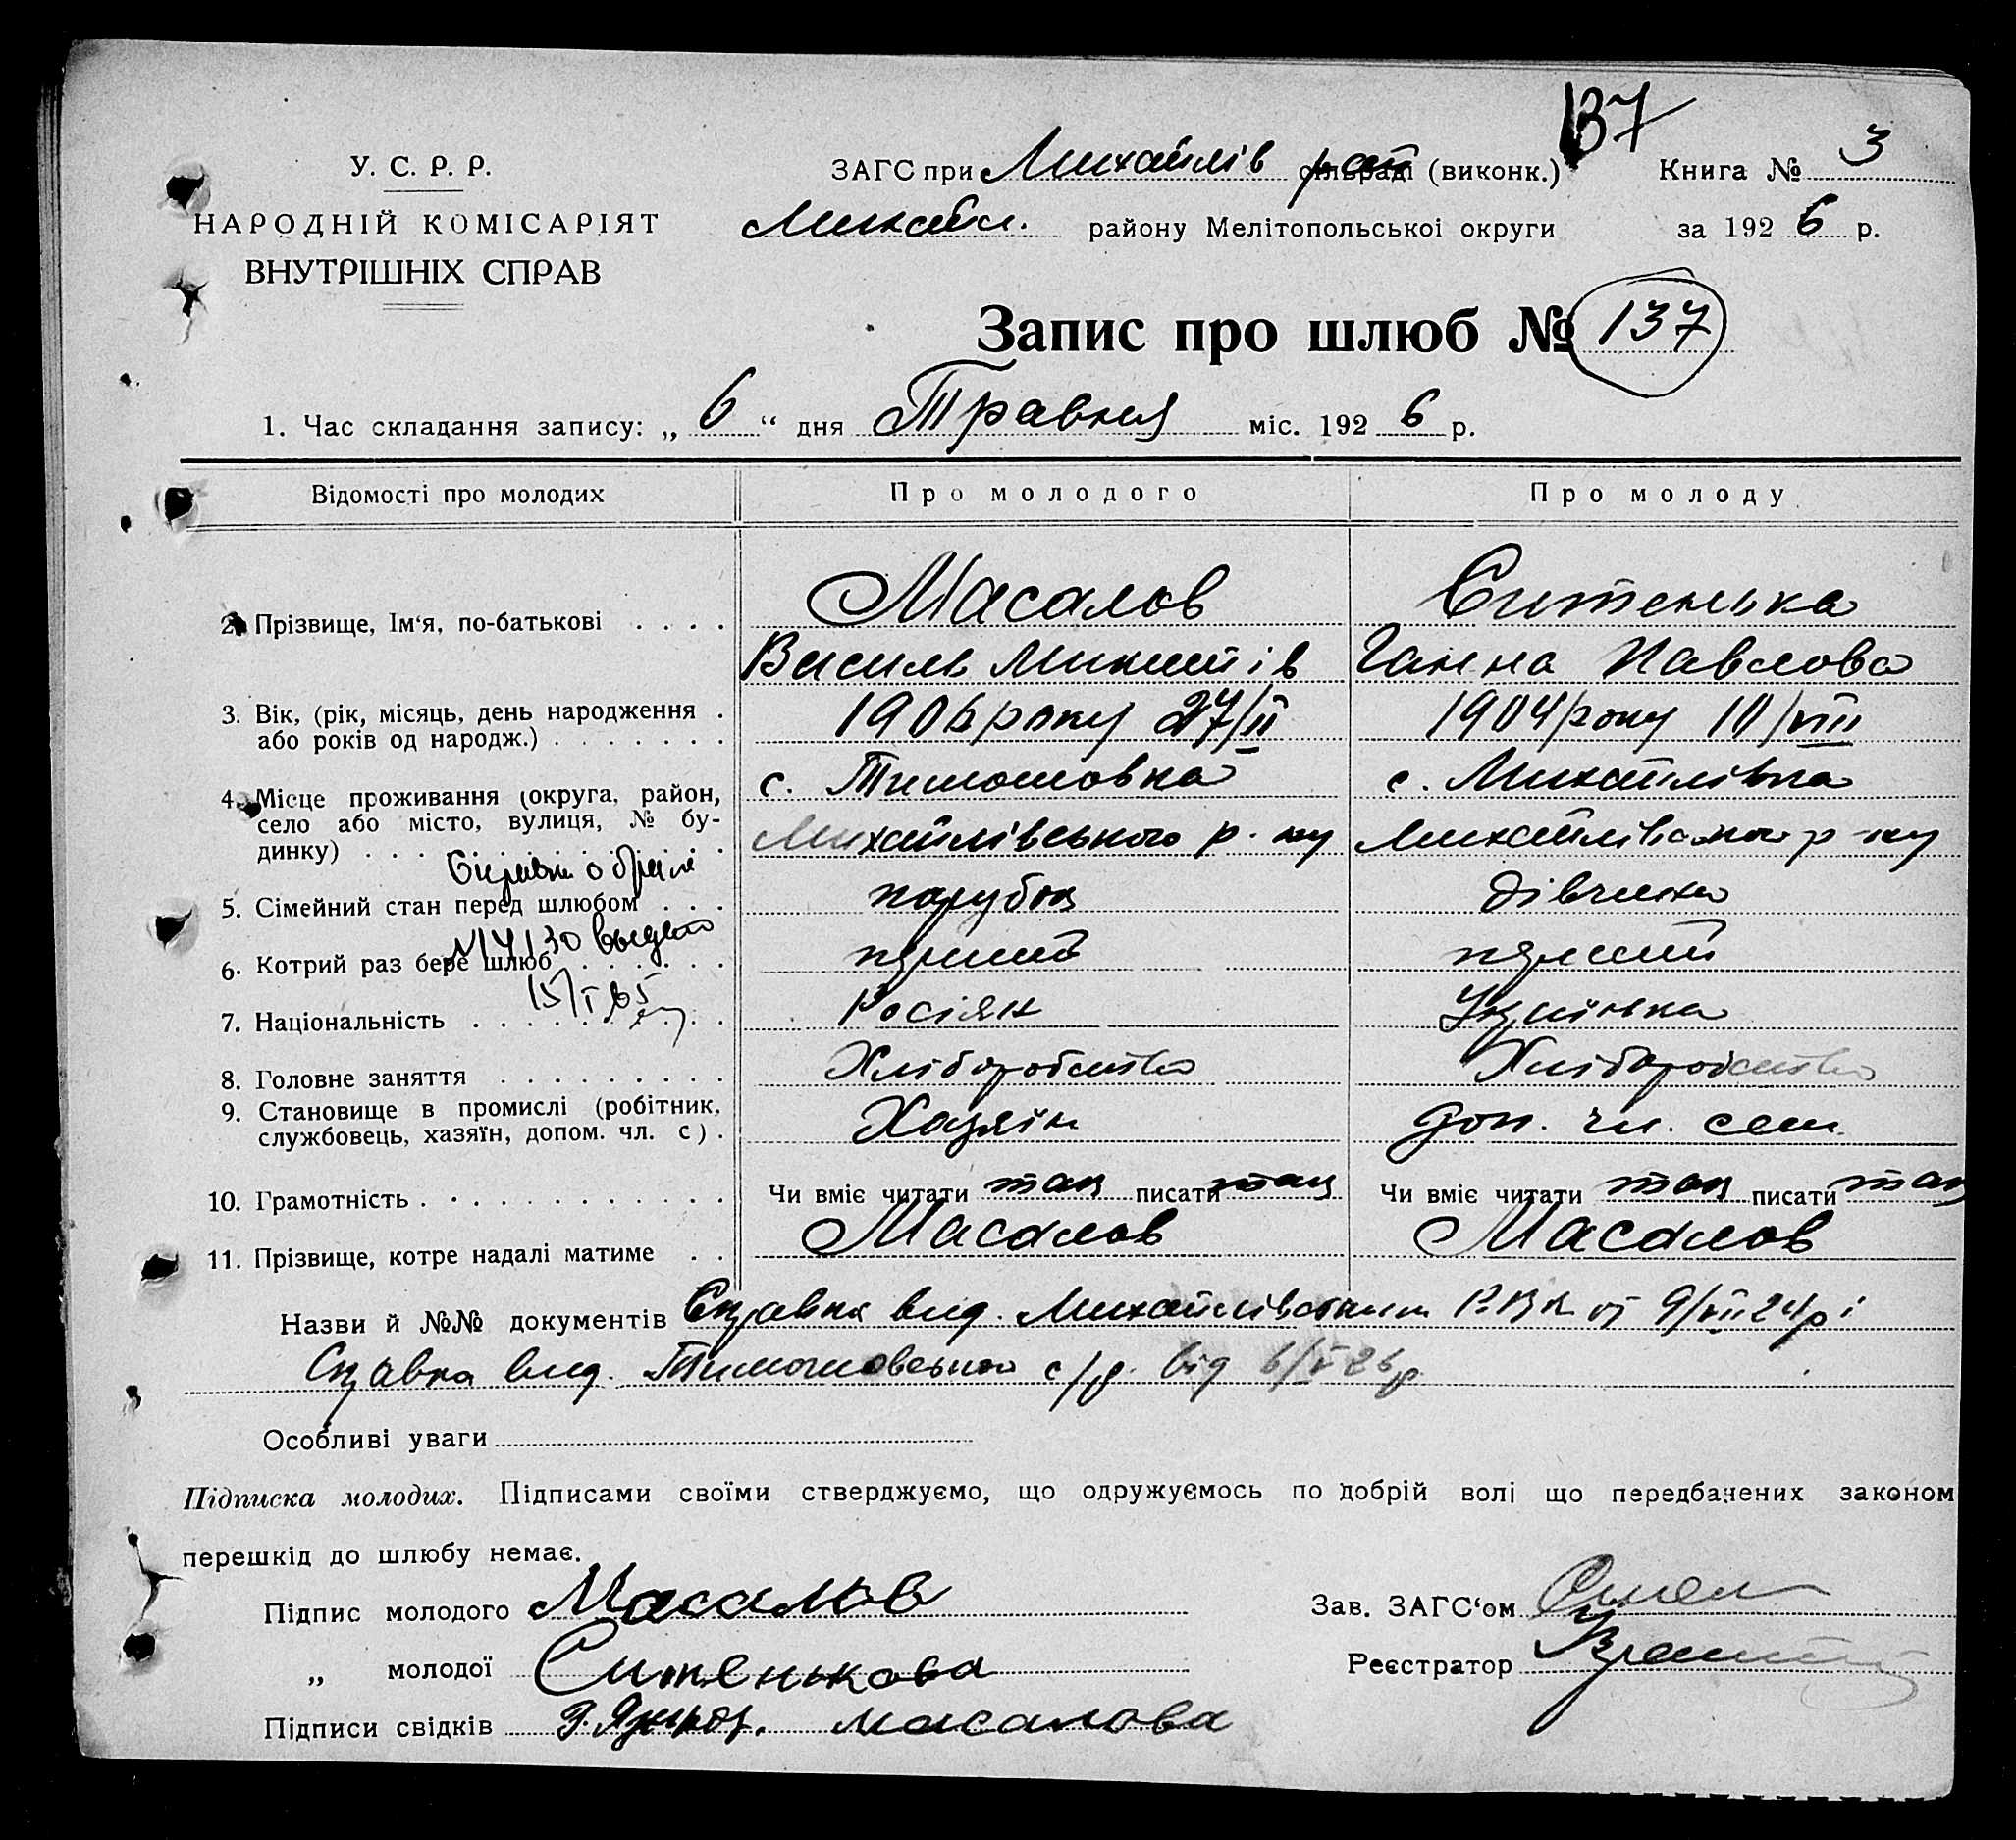 137
У. С. Р. Р.
НАРОДНІЙ КОМІСАРІЯТ
ВНУТРІШНІХ СПРАВ
ЗАГС при Михайлів рай (виконк.) Книга № 3
Михайл. району Мелітопольськоі округи за 1926 р.
Запис про шлюб № 137
1. Час складання запису: „6“ дня Травня міс. 1926 р.
Відомості про молодих Про молодого Про молоду
2. Прізвище, Ім‘я, по-батькові . . . . Масалов Ситенька
Василь Микитів Ганна Павлова
3. Вік, (рік, місяць, день народження . або років од народж.) . . . . . . . 1906 року 27/II 1904 року 10/VIII
4. Місце проживання (округа, район, с. Тимошовка с. Михайлівка
село або місто, вулиця, № бу-
динку) . . . Михайлівського р-ну Михайлівського р-ну
Справка о браке
5. Сімейний стан перед шлюбом . . . парубок дівчина
№ 14130 выдана
6. Котрий раз бере шлюб . . . . . . перший перший
15/I 65
7. Національність . . . . . . . . . Росіян Українка
8. Головне заняття . . . . . . . . . Хліборобство Хліборобство
9. Становище в промислі (робітник,
службовець, хазяїн, допом. чл. с) . Хазяїн доп. чл. сем.
10. Грамотність . . . . . . . . . . . . Чи вміє читати так писати так Чи вміє читати так писати так
11. Прізвище, котре надалі матиме . . Масалов Масалов
Назви й №№ документів Справка вид. Михайлівським РВК от 9/VII 24 р і
Справка вид. Тимошовською с/р. від 6/V 26 р.
Особливі уваги
Підписка молодих. Підписами своїми стверджуємо, що одружуємось по добрій волі що передбачених законом
перешкід до шлюбу немає.
Підпис молодого Масалов Зав. ЗАГС‘ом
„ молодої Ситенькова Реєстратор
Підписи свідків Масалова